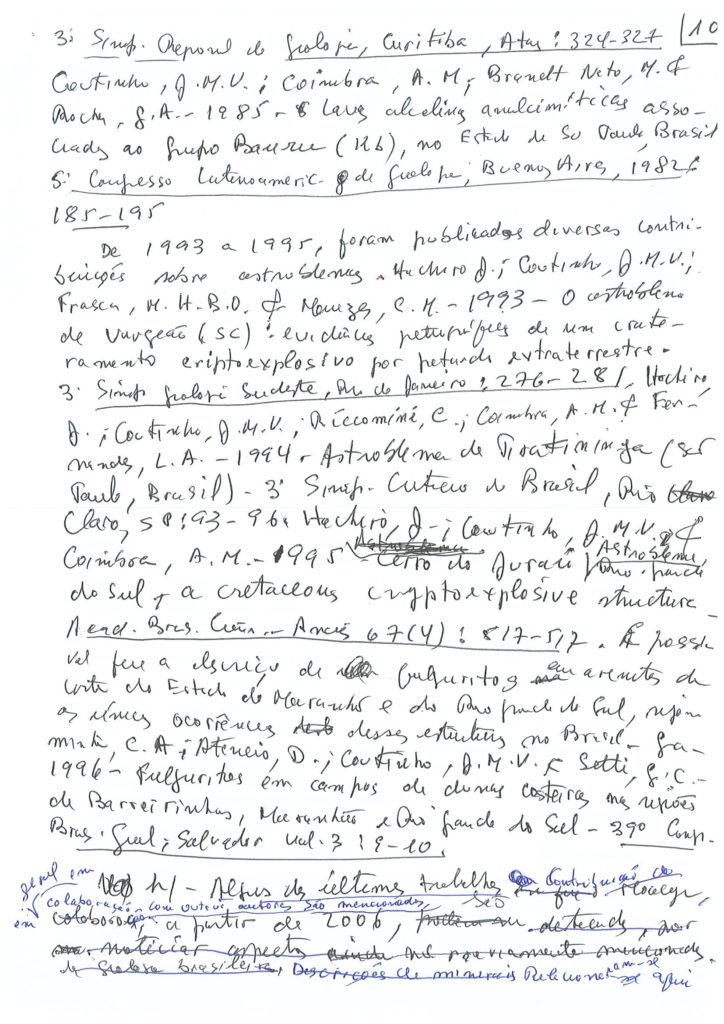 10
3º Simp. Regional de Geologia, Curitiba, Atas: 324-327
Coutinho, J.M.V.; Coimbra, A.M; Brandt Neto, M. &
Rocha, G.A. - 1985 - Lavas alcalinas analcimíticas asso-
ciadas ao Grupo Bauru (Kb), no Estado de São Paulo, Brasil
5º Congresso Latinoameric. de Geologia, Buenos Aires, 1982:
185-195
De 1993 a 1995, foram publicados diversas contri-
buições sobre astroblemas. Hachiro J.; Coutinho, J.M.V.;
Frasca, M.H.B.O. & Menezes, C.M. - 1993 - O astroblema
de Vargeão (SC): evidências petrográficas de um crate-
ramento criptoexplosivo por petardo extraterrestre.
3º Simp Geologia Sudeste, Rio de Janeiro: 276-281, Hachiro
J.; Coutinho, J.M.V.; Riccomini, C.; Coimbra, A.M. & Fer-
nandes, L.A. - 1994 - Astroblema de Piratininga (São
Paulo, Brasil) - 3º Simp. Cretáceo do Brasil, Rio
Claro, SP: 93-96. Hachiro, J.; Coutinho, J.M.V. &
Coimbra, A.M. - 1995 Astroblema,
Cerro do Jarau, Rio Grande
do Sul, a cretaceous cryptoexplosive structure
Acad. Bras. Ciên. - Anais 67(4): 517-517. É possí-
vel que a descrição de fulguritos em arenitos da
costa do Estado do Maranhão e do Rio Grande do Sul, sejam
as únicas ocorrências dessas estruturas no Brasil -
1996 - Fulguritos em campos de dunas costeiras nas regiões
de Barreirinhas, Maranhão e Rio Grande do Sul - 39º Cong.
Bras. Geol; Salvador vol. 3: 9-10.
h/ - Alguns dos últimos trabalhos
geral em
colaboração com outros autores são mencionados,
a partir de 2006,
noticiar aspectos
da Geologia brasileira, Descrições de minerais
aqui